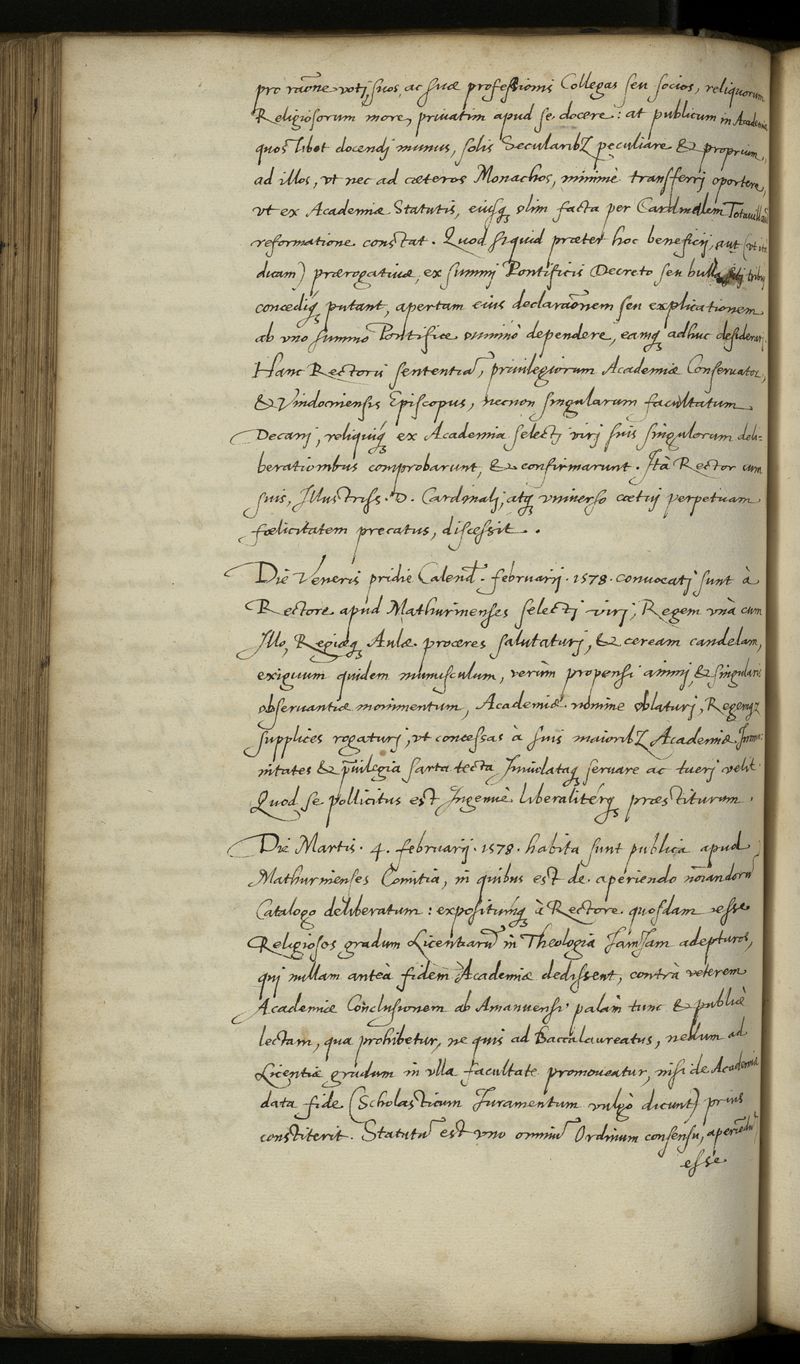 pro raõne voti, suos, ac suæ professionis Collegas seu socios, reliquorum
Religiosorum more, priuatim apud se docere: at publicum in Academia
quoslibet docendj munus, solis Secularibꝫ peculiare & proprium,
ad illos, vt nec ad cæteros Monachos, minimè transferrj oportere,
vt ex Academiæ Statutis, eiusqꝫ olim facta per Cardinalem Totauillæũ
reformatione constat. Quod siquid præter hoc beneficij, aut (vt ita
dicam) prærogatiuæ, ex summj Pontificis Decreto seu bulla sibj tribuj
concediqꝫ putant, apertam eius declaraõnem seu explicationem
ab vno summo Pontifice omninò dependere, eamqꝫ adhuc desiderarj.
Hanc Rectoris sententiã, priuilegiorum Academiæ Conseruator,
& Vindocinensis Episcopus, necnon singularum facultatum
Decanj, reliquiqꝫ ex Academia selectj virj suis singulorum deli-
berationibus comprobarunt, & confirmarunt. Ità Rector cum
suis, Illustriss. D. Cardinalj, atqꝫ vniuerso cœtuj perpetuam
fœlicitatem precatus, discessit.
Die Veneris pridie Calend. februarij. 1578. conuocatj sunt à
Rectore apud Mathurinenses selectj virj, Regem vnà cum
Illo, Regiæqꝫ Aulæ proceres salutaturj, & ceream candelam,
exiguum quidem munusculum, verùm propensi animj, & singularis
obseruantiæ monimentum, Academiæ nomine oblaturj, Regemqꝫ
supplices rogaturj, vt concessas à suis maioribꝫ Academiæ Immu-
nitates & priuilegia sarta tecta Inuiolataqꝫ seruare ac tuerj velit.
Quod se pollicitus est Ingenuè liberaliterqꝫ præstiturum.
Die Martis. 4. februarij. 1578. habita sunt publica apud
Mathurinenses Comitia, in quibus est de aperiendo nõiandorũ
Catalogo deliberatum: expositumqꝫ à Rectore quosdam esse
Religiosos gradum Licentiarũ in Theologia IamIam adepturos,
quj nullam anteà fidem Academiæ dedissent, contrà veterem
Academiæ Conclusionem ab Amanuensi palàm tunc & publicè
lectam, qua prohibetur, ne quis ad Baccalaureatus, nedum ad
Licentiæ gradum in vlla facultate promoueatur, nisi de Academiæ
data fide (Scholasticum Iuramentum vulgò dicunt) prius
constiterit. Statutũ est vno omniũ Ordinum consensu, aperiẽdũ
esse